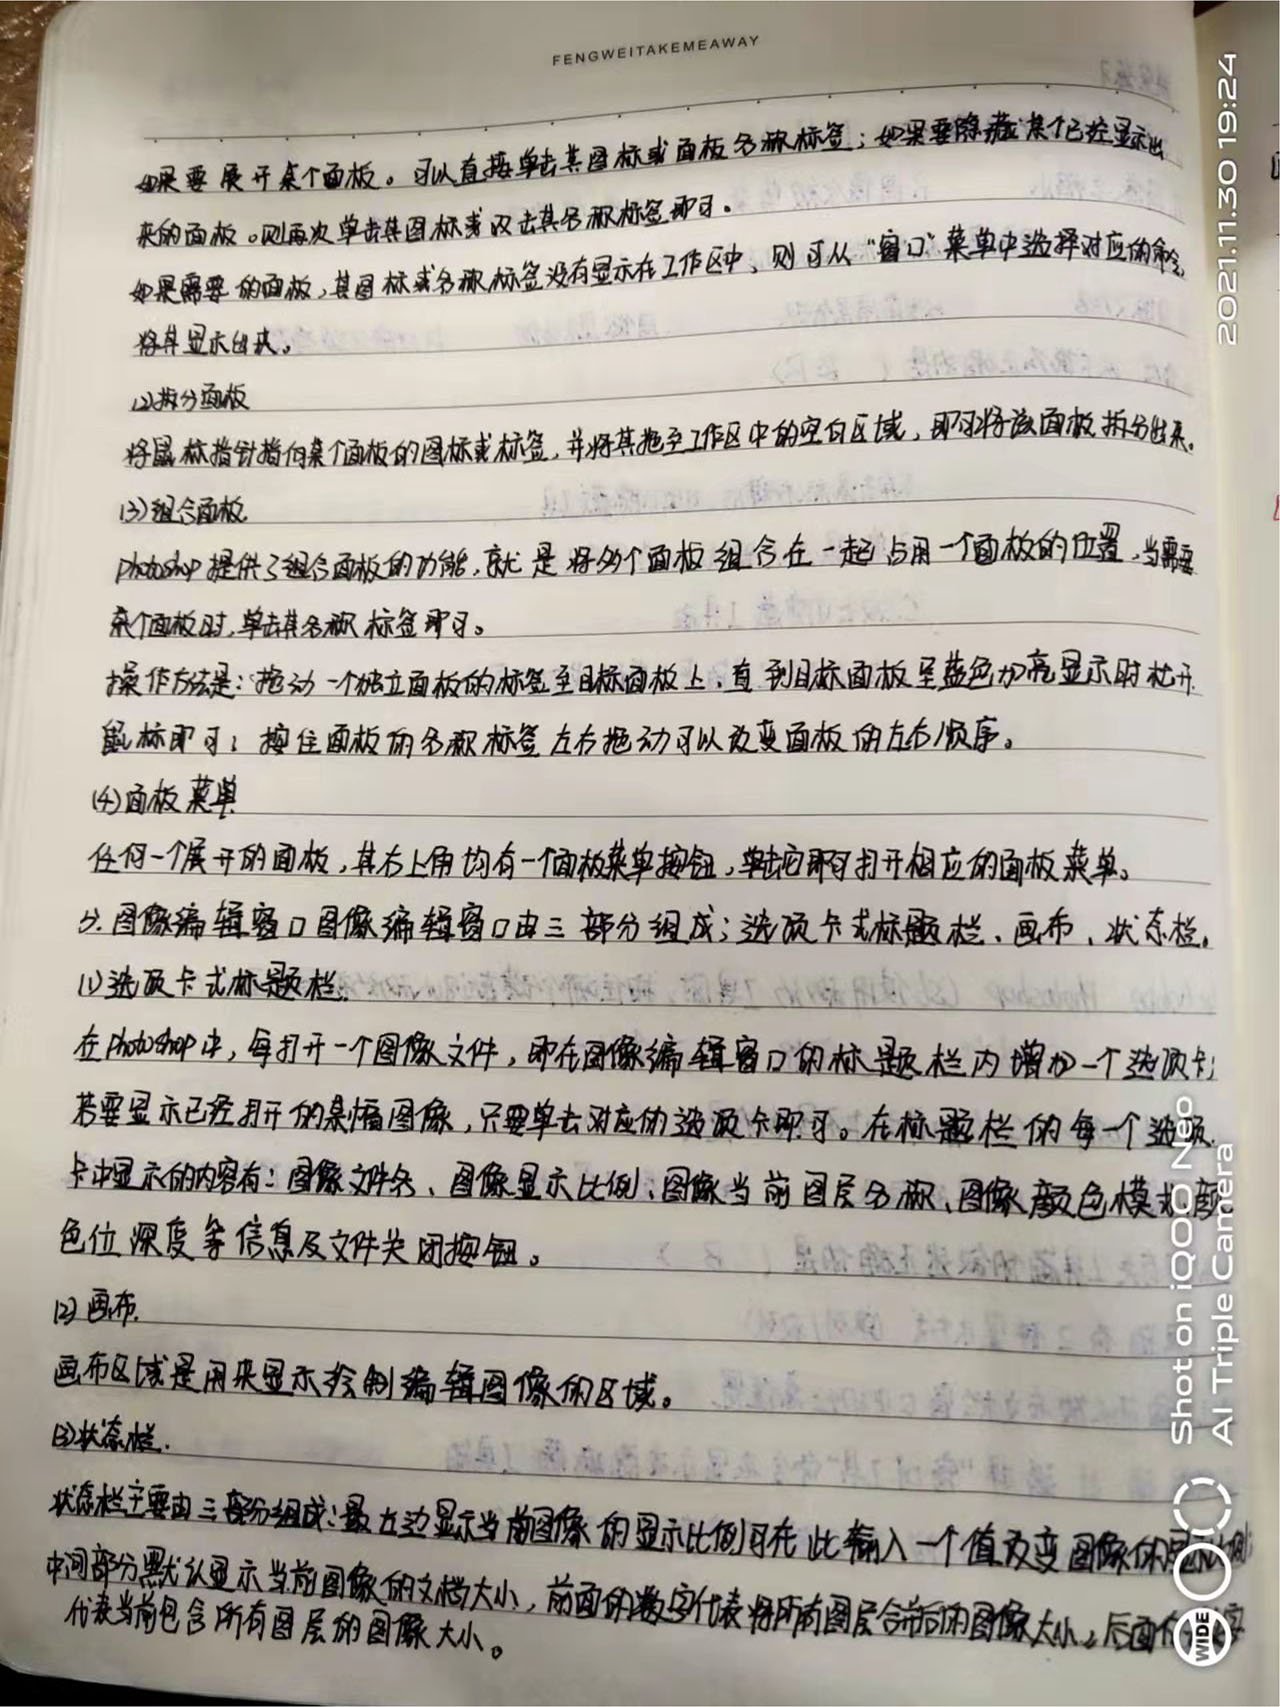 FENGWEITAKEMEAWAY
如果要展开某个面板。可以直接单击其图标或面板名称标签；如果要隐藏某个已经显示出
来的面板。则再次单击其图标或双击其名称标签即可。
如果需要的面板，其图标或名称标签没有显示在工作区中、则可从“窗口”菜单中选择对应的命令，
将其显示出来。
(2)拆分面板
将鼠标指针指向某个面板的图标或标签，并将其拖至工作区中的空白区域，即可将该面板拆分出来。
(3)组合面板
photoshop提供了组合面板的功能，就是将多个面板组合在一起占用一个面板的位置，当需要
某个面板时，单击其名称标签即可。
操作方法是：拖动一个独立面板的标签至目标面板上、直到目标面板呈蓝色加亮显示时松开
鼠标即可；按住面板的名称标签左右拖动可以改变面板的左右顺序。
(4)面板菜单
任何一个展开的面板，其右上角均有一个面板菜单按钮，单击它即可打开相应的面板菜单。
5.图像编辑窗口图像编辑窗口由三部分组成；选项卡式标题栏、画布、状态栏。
(1)选项卡式标题栏.
在photoshop中，每打开一个图像文件，即在图像编辑窗口的标题栏内增加一个选项卡；
若要显示已经打开的某幅图像，只要单击对应的选项卡即可。在标题栏的每一个选项
卡中显示的内容有：图像文件名、图像显示比例、图像当前图层名称、图像颜色模式、颜
色位深度等信息及文件关闭按钮。
(2)画布.
画布区域是用来显示绘制编辑图像的区域。
(3)状态栏.
状态栏主要由三部分组成：最左边显示当前图像的显示比例可在此输入一个值改变图像的显示比例；
中间部分默认显示当前图像的文档大小，前面的数字代表将所有图层合并后的图像大小，后面的数字
代表当前包含所有图层的图像大小。
2021.11.30 19:24
Shot on iQOO Neo
AI Triple Camera
WIDE